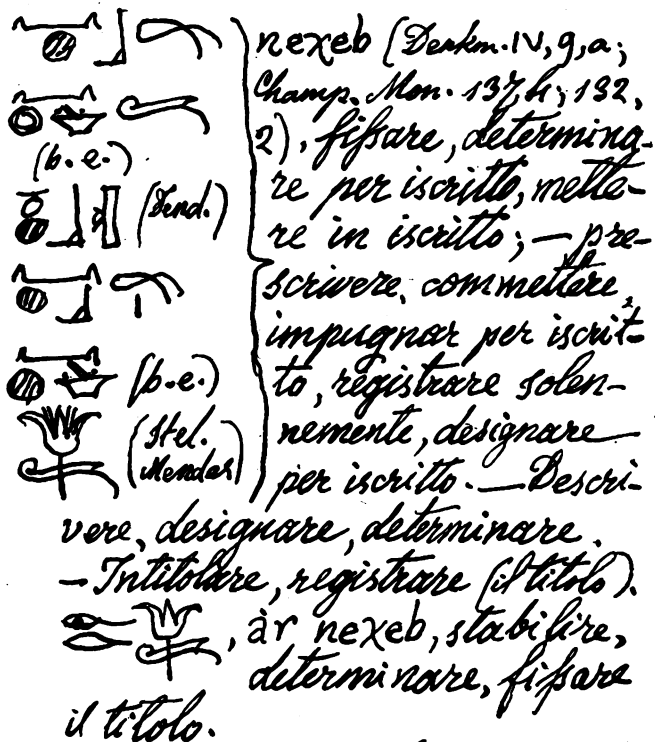 nexeb (Denkm. IV, 9, a;
Champ. Mon. 137, h; 132,
(b.e.) 2), fissare, determina-
re per iscritto, mette-
(Dend.) re in iscritto; — pre-
scrivere, commettere,
impugnar per iscrit-
(b.e.) to, registrare solen-
(Stel. nemente, designare
Mendes) per iscritto. — Descri-
vere, designare, determinare.
— Intitolare, registrare (il titolo).
, àr nexeb, stabilire,
determinare, fissare
il titolo.